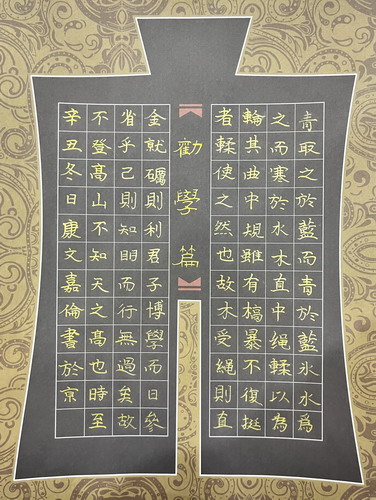 青取之於藍而青於藍氷水爲
之而寒於水木直中繩輮以為
輪其曲中規雖有槁暴不復挺
者輮使之然也故木受繩則直
勸學篇
金就礪則利君子博學而日參
省乎己則知明而行無過矣故
不登髙山不知天之髙也時至
辛丑冬日康文嘉倫書於京